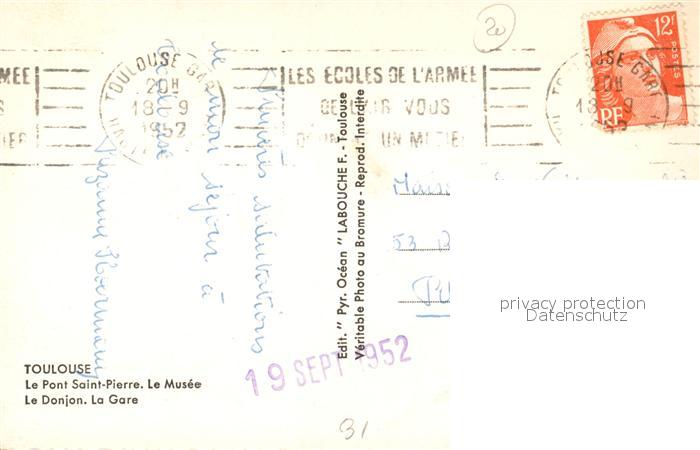 20
12F
POSTES
RF
TOULOUSE GARE
20H
18-9
1952
MEE
S
IER
LES ECOLES DE L'ARMEE
VOUS
UN METIER
TOULOUSE GARE
20H
18-9
salutations
de mon séjour à
Toulouse
Suzanne
Edit. " Pyr. Océan " LABOUCHE F. - Toulouse
Véritable Photo au Bromure - Reprod. Interdite
53
privacy protection
Datenschutz
19 SEPT 1952
TOULOUSE
Le Pont Saint-Pierre. Le Musée
Le Donjon. La Gare
31